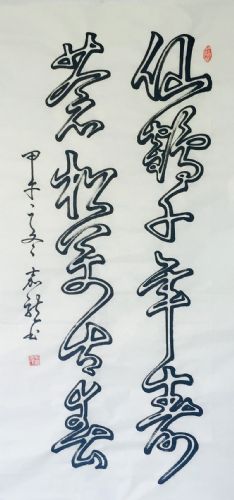 仙鹤千年寿
苍松万古春
甲午之冬嘉龙书